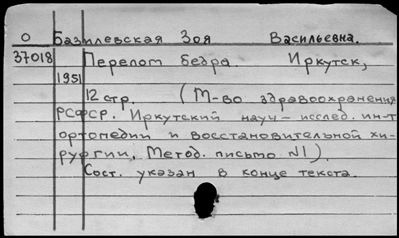 О Базилевская Зоя Васильевна.
37018 Перелом бедра Иркутск,
1951
12 стр. (М-во здравоохранения
РСФСР. Иркутский науч-исслед. ин-т
ортопедии и восстановительной хи-
рургии, Метод. письмо N1).
Сост. указан в конце текста.